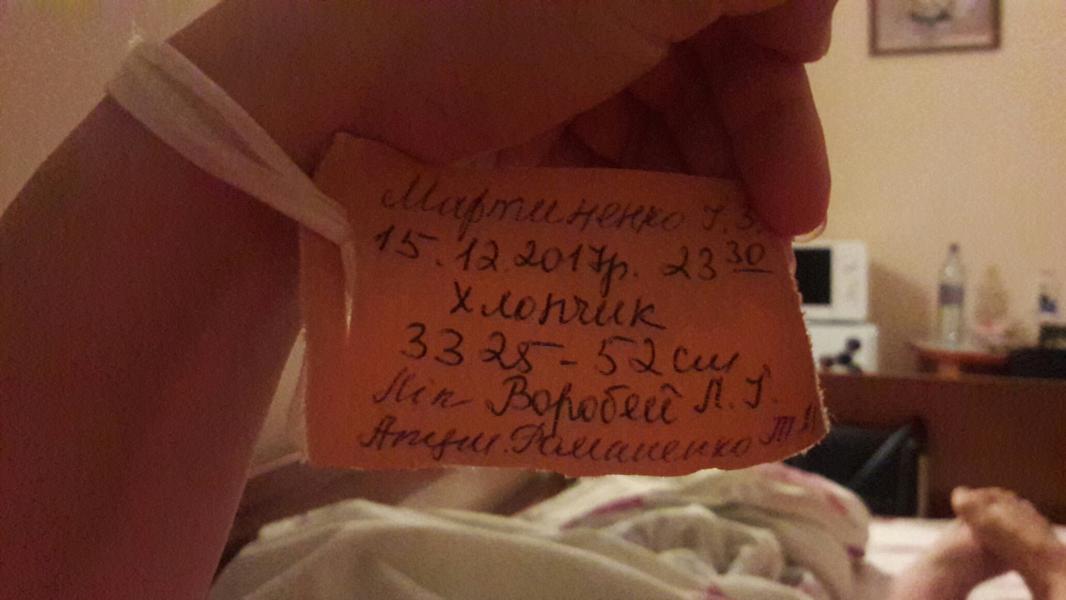 Мартиненко І. З.
15.12.2017р. 23 30
Хлопчик
3325 - 52 см
Лік Воробей Л. І.
Акуш. Романенко Т